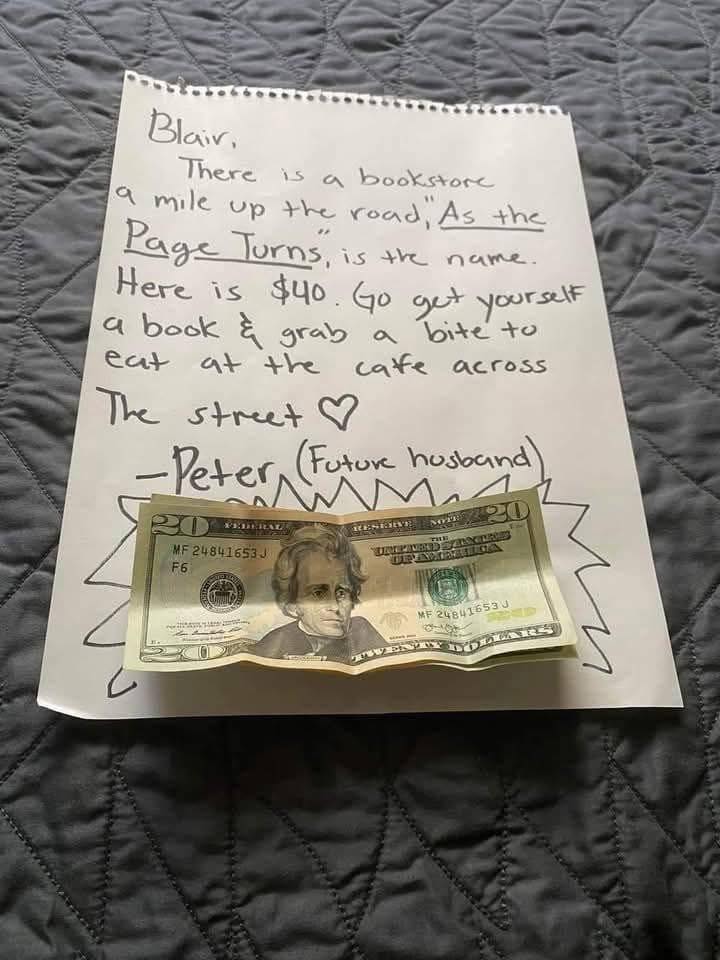 Blair,
There is a bookstore
a mile up the road, "As the
Page Turns", is the name.
Here is $40. Go get yourself
a book & grab a bite to
eat at the cafe across
The street ♡
-Peter (Future husband)
20 FEDERAL RESERVE NOTE 20
THE
UNITED STATES
OF AMERICA
MF 24841653 J
F6
MF 24841653 J
20
TWENTY DOLLARS